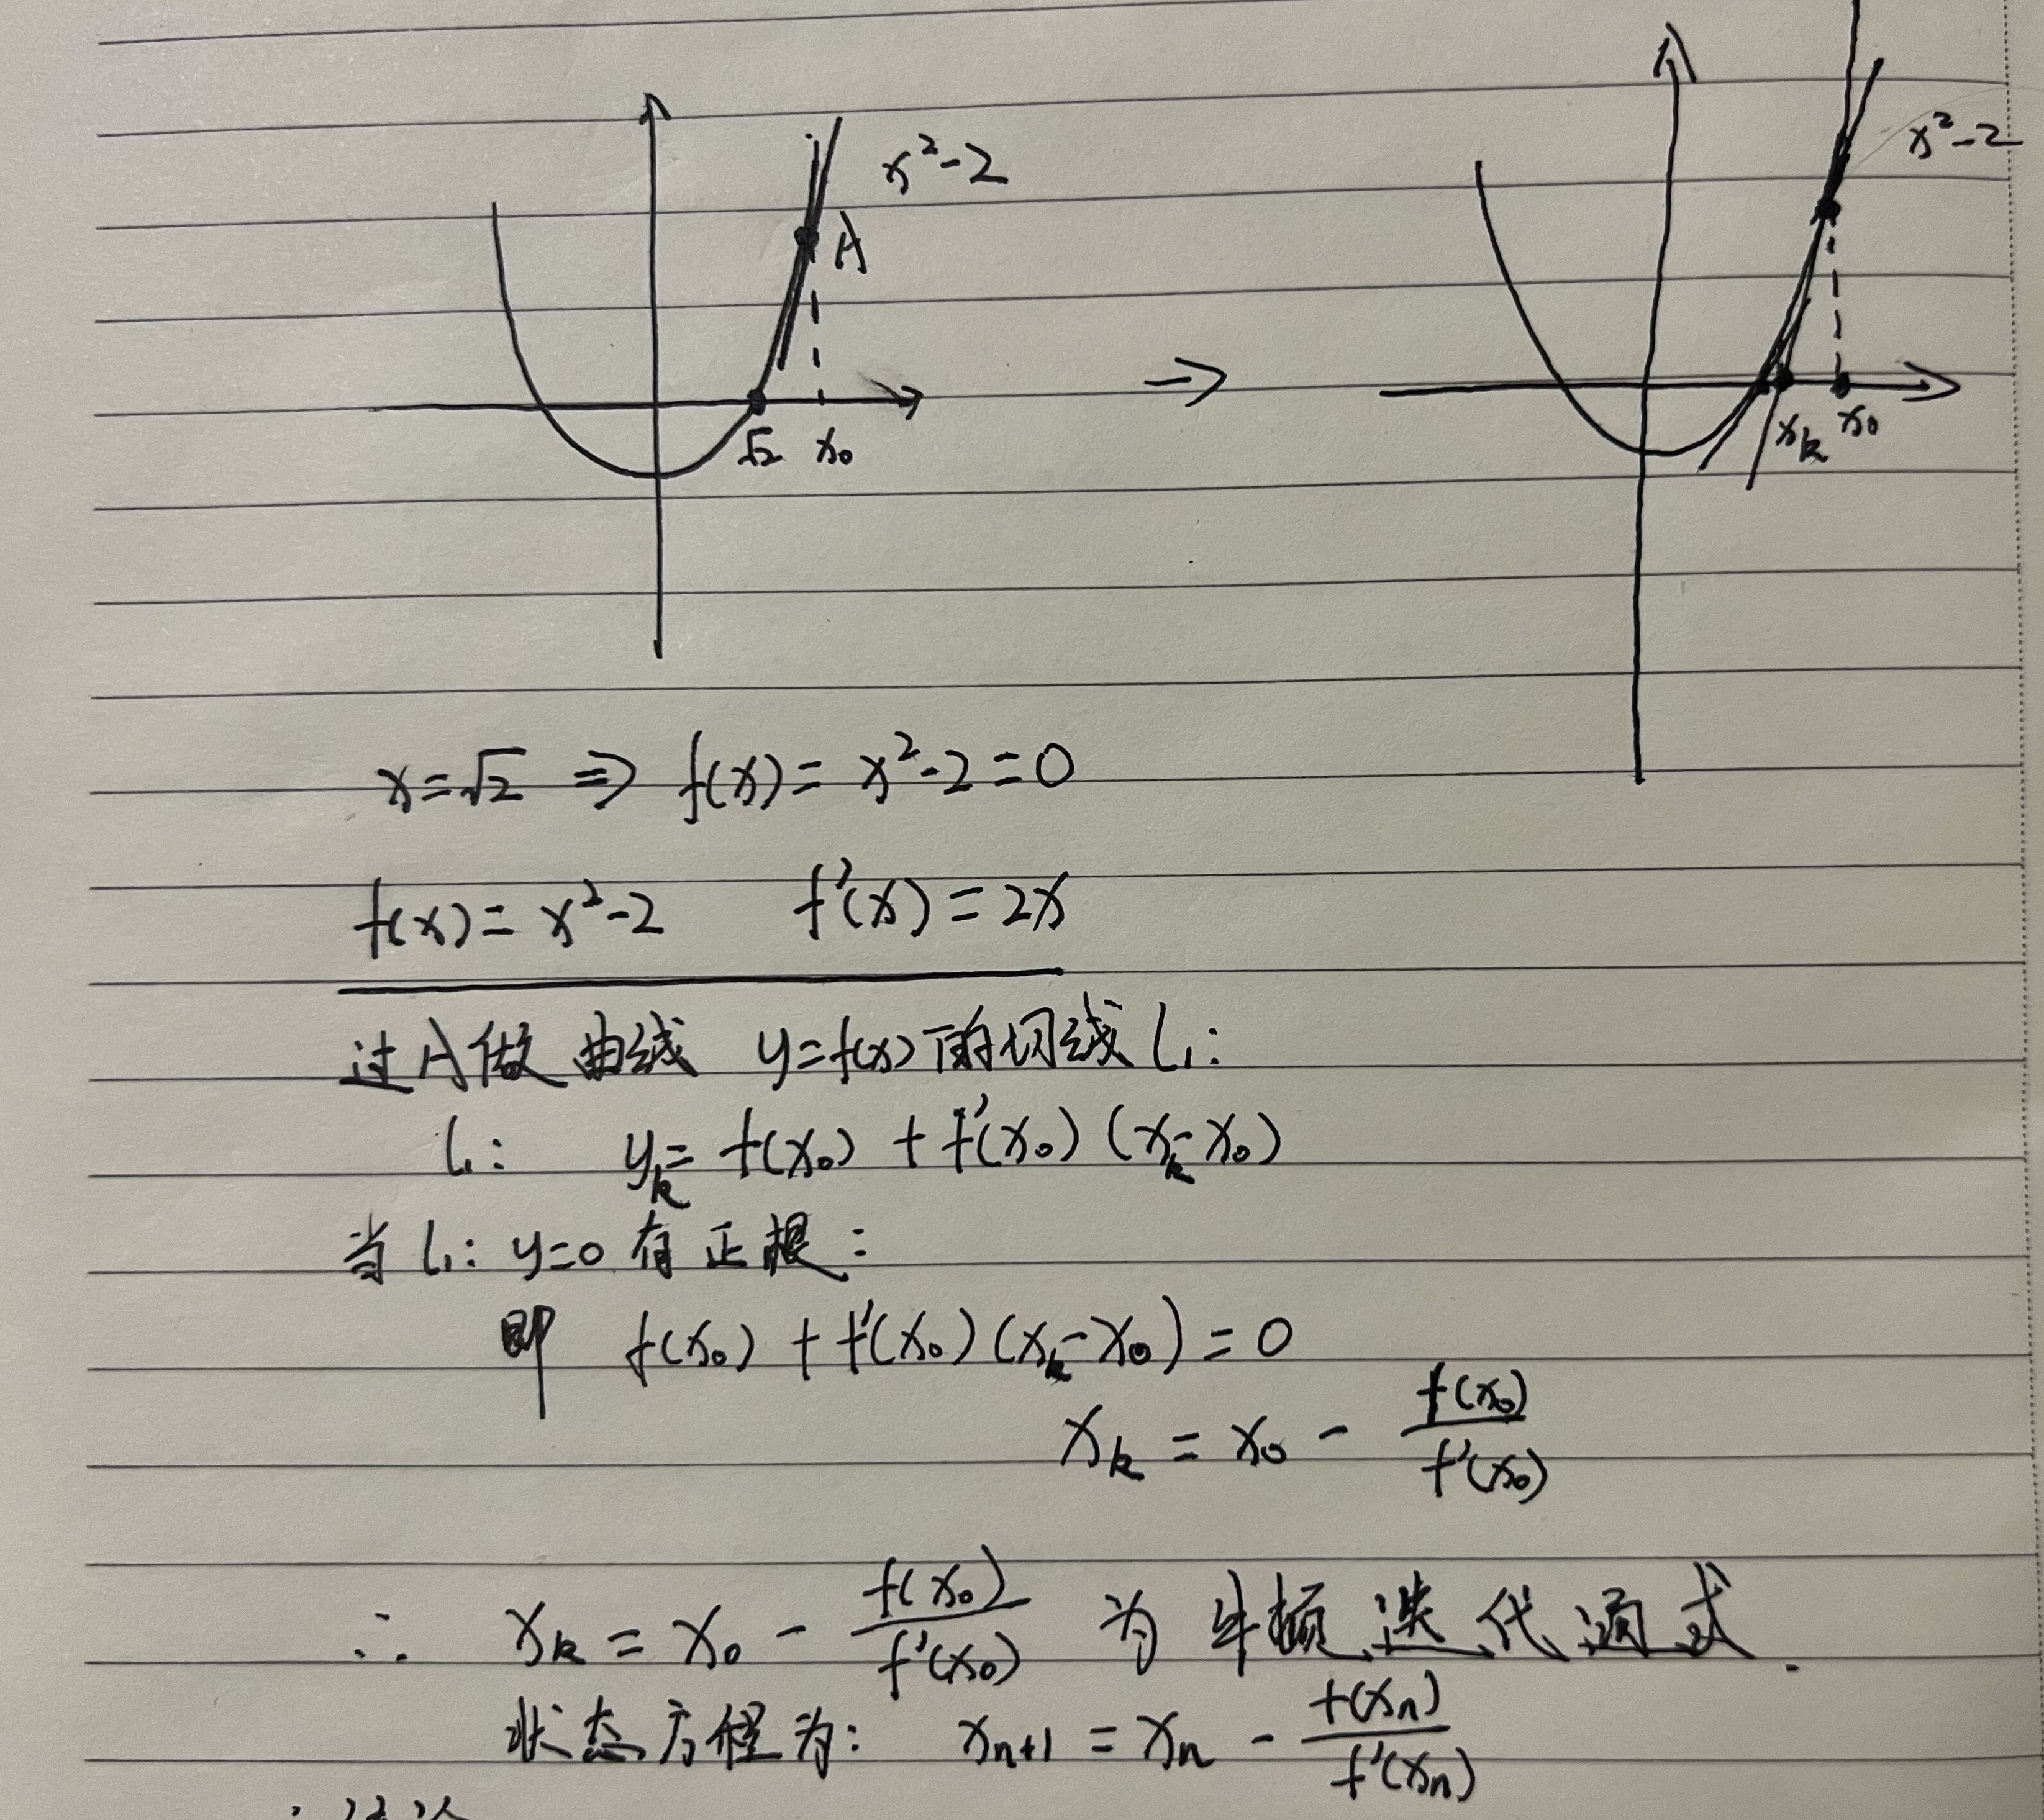 x²-2
A
√2 x₀
x²-2
xₖ x₀
x=√2 ⇒ f(x)= x²-2=0
f(x)= x²-2 f'(x)=2x
过A做曲线 y=f(x)的切线l₁:
l₁: yₖ= f(x₀) + f'(x₀) (xₖ-x₀)
当l₁: y=0有正根:
即 f(x₀) + f'(x₀) (xₖ-x₀)=0
xₖ = x₀ - f(x₀)/f'(x₀)
∴ xₖ = x₀ - f(x₀)/f'(x₀) 为牛顿迭代通式.
状态方程为: xₙ₊₁ = xₙ - f(xₙ)/f'(xₙ)